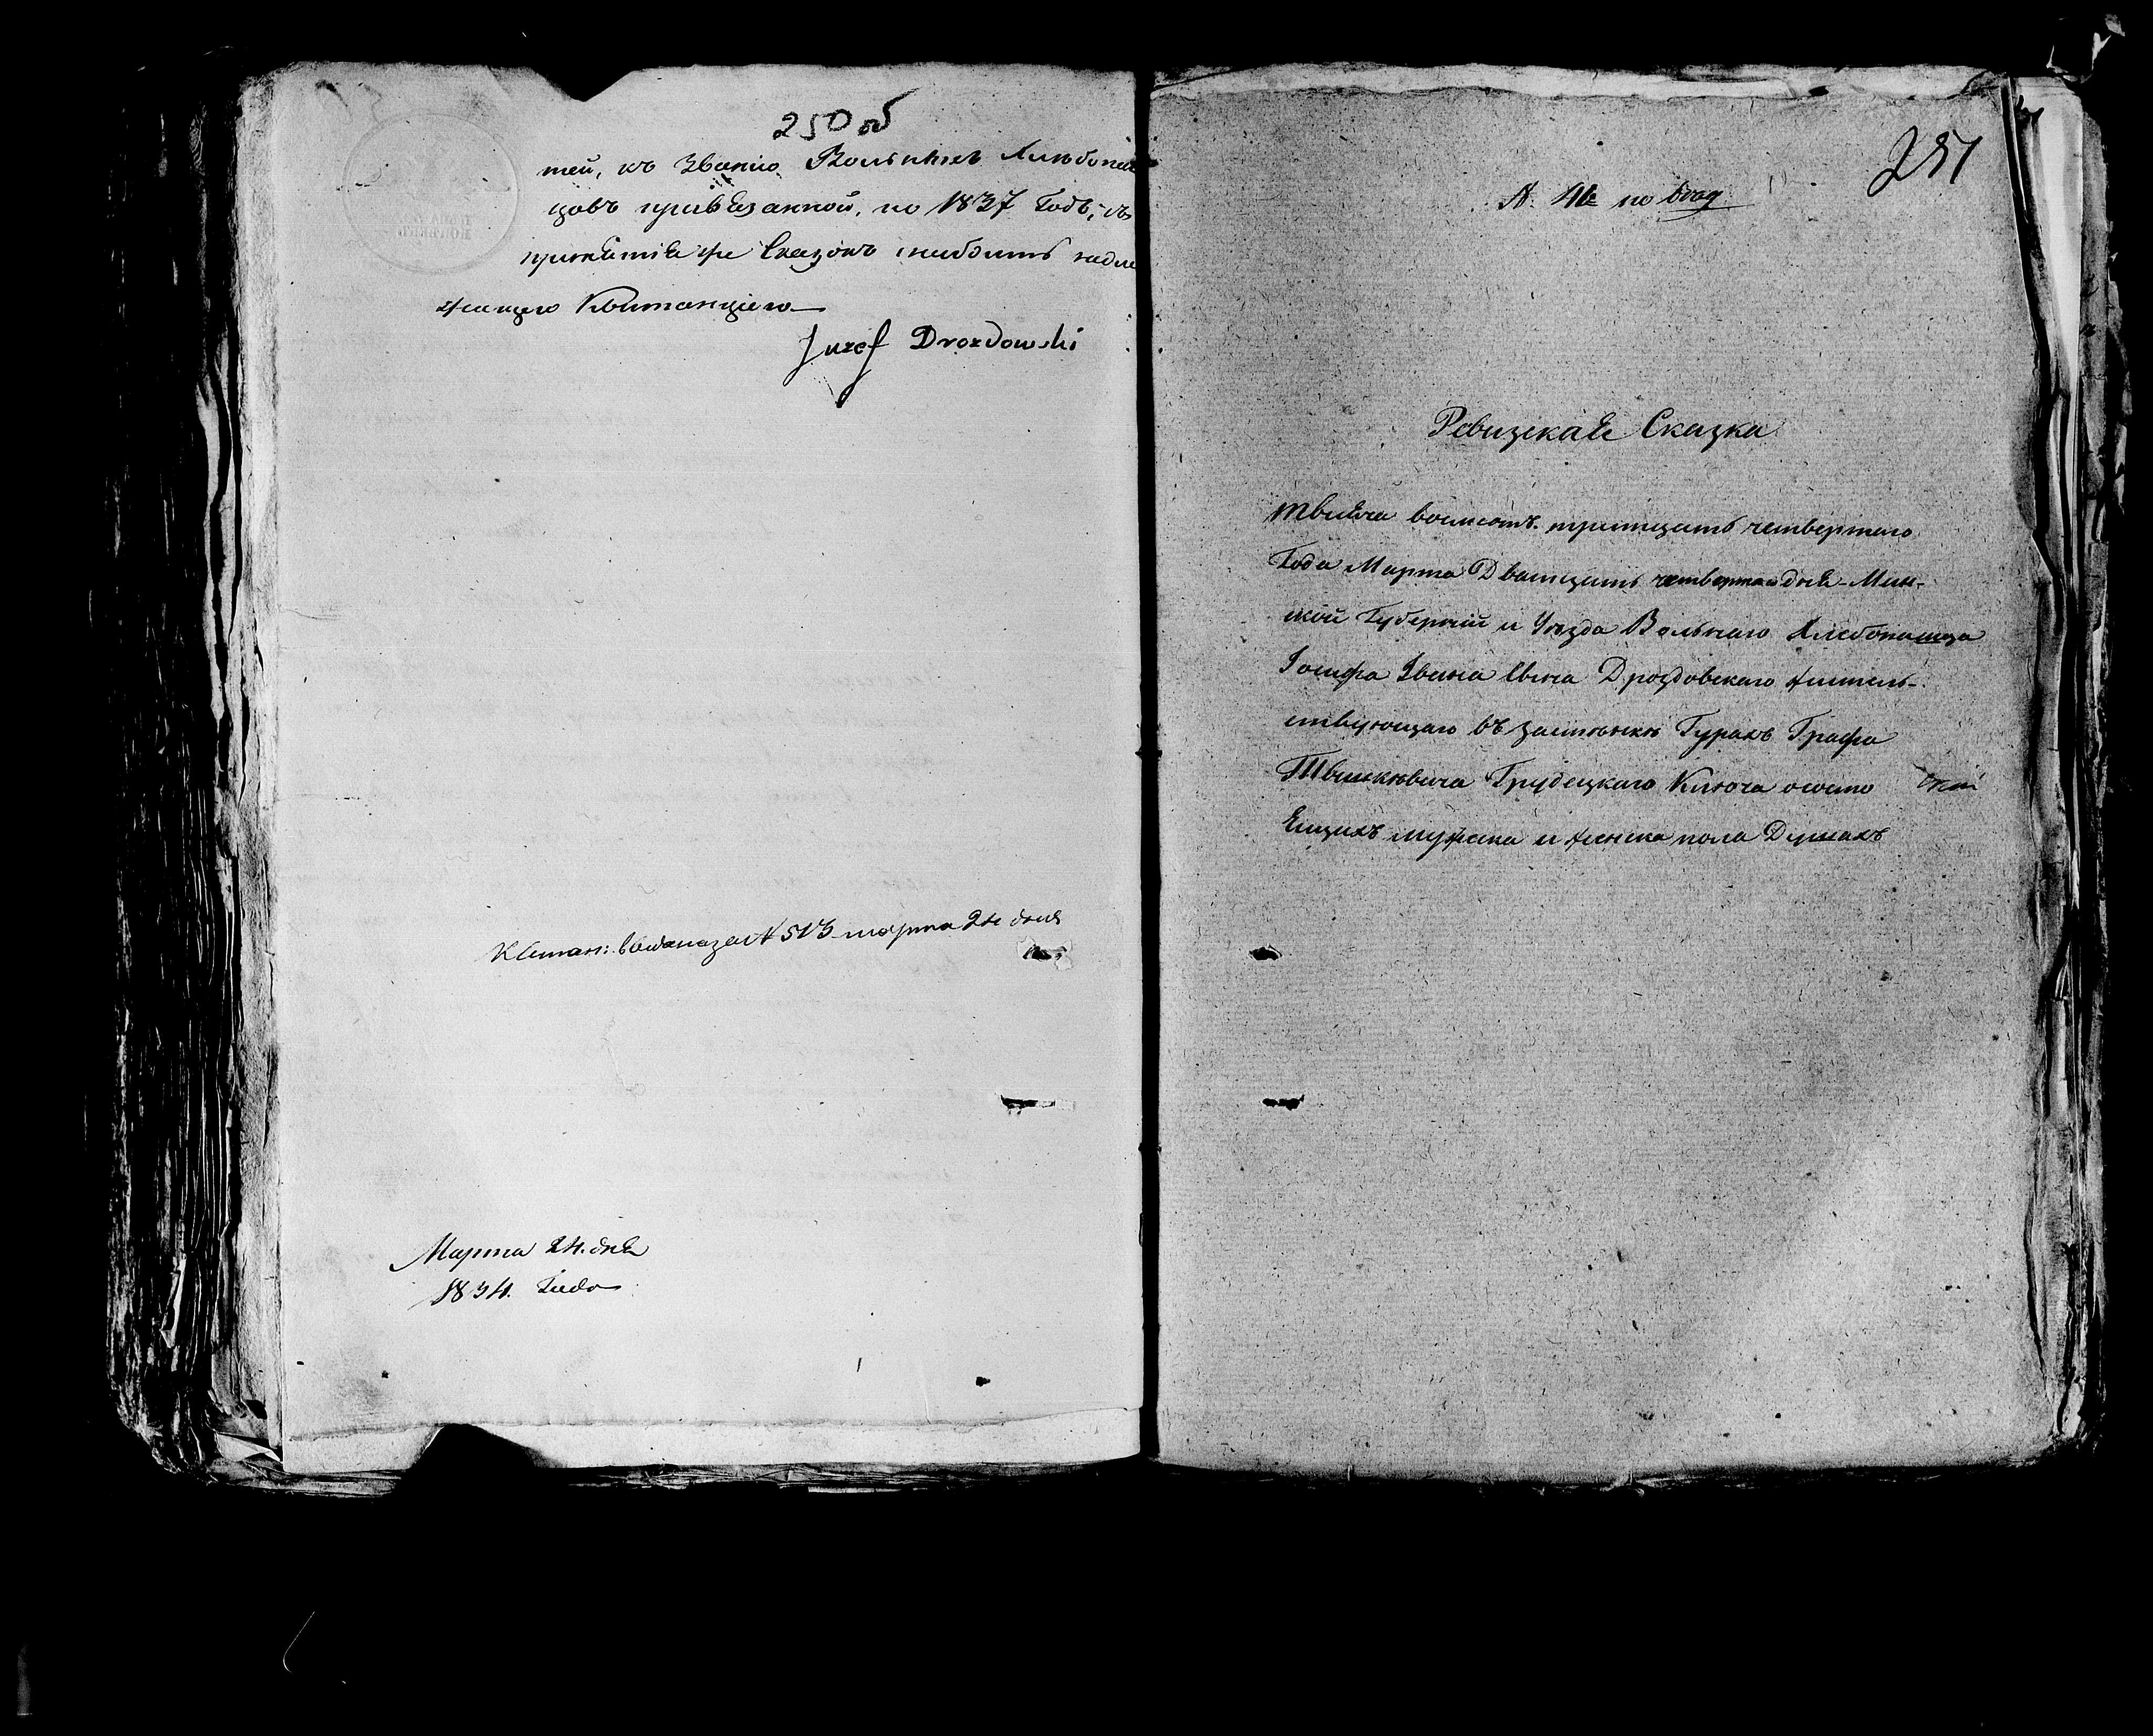 250 об
тей, къ званію Вольныхъ Хлѣбопаш
цовъ привязанной, по 1837 Годъ, съ
принятія же Сказокъ снабдить надле
жащею Квитанціею
Juzef Drozdowski
Квитан: выдана за N 513 марта 24 дня
Марта 24. дня
1834. Года
251
N. 42 по
Ревизская Сказка
Тысяча восмсотъ тритцать четвертаго
Года Марта Дватцать четвертаго дня - Мин-
ской Губерніи и Уѣзда Вольнаго Хлебопашца
Іосифа Ивана Сына Дроздовскаго житель-
ствующаго въ застѣнкѣ Гурахъ Графа
Тышкѣвича Грудецкаго Ключа о состо
ящихъ мужска и женска пола Душахъ